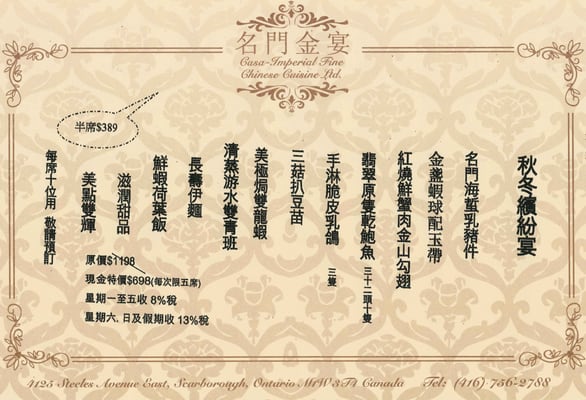 名門金宴
Casa-Imperial Fine
Chinese Cuisine Ltd.
半席$389
秋冬繽紛宴
名門海蜇乳豬件
金盞蝦球配玉帶
紅燒鮮蟹肉金山勾翅
翡翠原隻乾鮑魚 三十二頭十隻
手淋脆皮乳鴿 三隻
三菇扒豆苗
美極焗雙龍蝦
清蒸游水雙青班
長壽伊麵
鮮蝦荷葉飯
滋潤甜品
美點雙輝
每席十位用 敬請預訂
原價$1198
現金特價$698(每次限五席)
星期一至五收 8%稅
星期六, 日及假期收 13%稅
4125 Steeles Avenue East, Scarborough, Ontario M1W 3T4 Canada Tel: (416) 756-2788